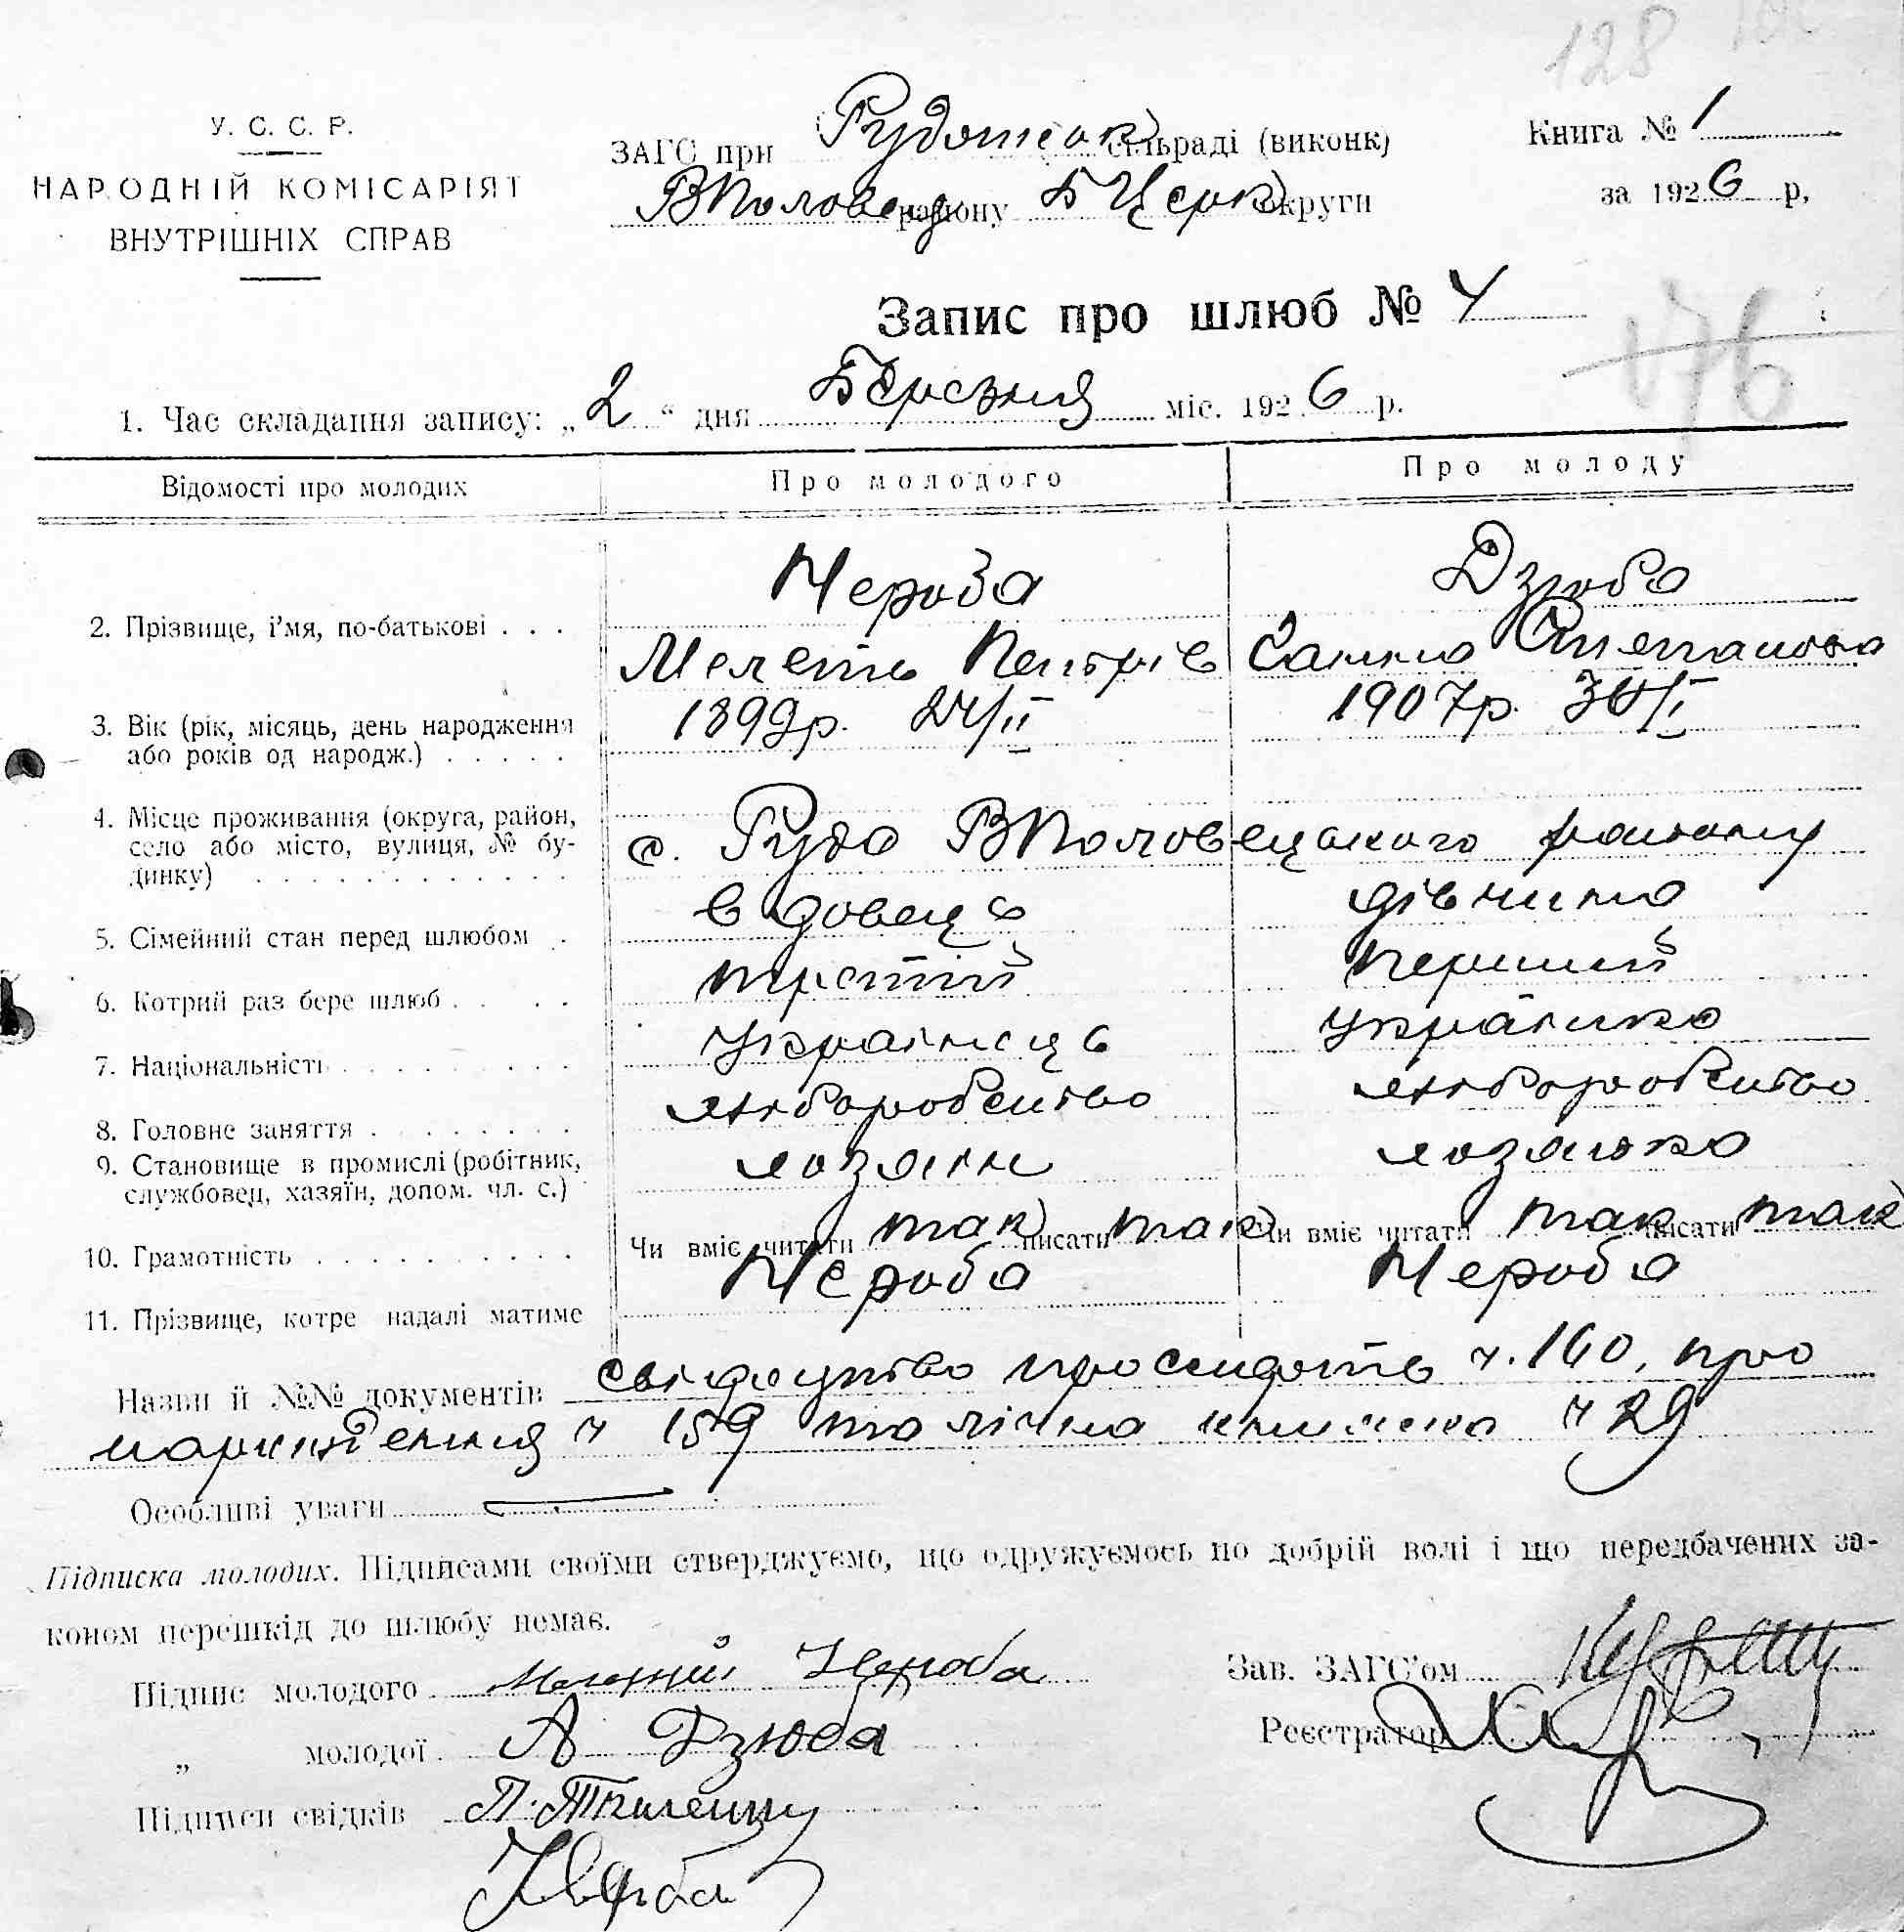 128
У. С. С. Р.
НАРОДНІЙ КОМІСАРІЯТ
ВНУТРІШНІХ СПРАВ
ЗАГС при Рудянськ сільраді (виконк)
ВПоловец району БЦерк округи
Книга № 1
за 1926 р,
Запис про шлюб № 4
176
1. Час складання запису: „2“ дня Березня міс. 1926 р.
Відомості про молодих
Про молодого
Про молоду
2. Прізвище, і'мя, по-батькові . . .
Нероба
Мелеть Петрів
Дзюба
Ганна Степанова
3. Вік (рік, місяць, день народження
або років од народж.) . . . . .
1899р. 24/II
1907р. 30/I
4. Місце проживання (округа, район,
село або місто, вулиця, № бу-
динку) . . . . . . . . . . . .
с. Руда ВПоловецького району
5. Сімейний стан перед шлюбом .
вдовець
дівчина
6. Котрий раз бере шлюб . . . .
третій
перший
7. Національність . . . . . . . . .
Українець
Українка
8. Головне заняття . . . . . . . .
хліборобство
хліборобство
9. Становище в промислі (робітник,
службовец, хазяїн, допом. чл. с.)
хозяїн
хозяйка
10. Грамотність . . . . . . . . . .
Чи вміє читати так писати так
Чи вміє читати так писати так
11. Прізвище, котре надалі матиме
Нероба
Нероба
Назви й №№ документів свідоцтво про смерть ч. 160, про
народження ч 159 та лічна книжка ч 29
Особливі уваги
Підписка молодих. Підписами своїми стверджуємо, що одружуємось по добрій волі і що передбачених за-
коном перешкід до шлюбу немає.
Підпис молодого Нероба
„ молодої А Дзюба
Підписи свідків
Зав. ЗАГС'ом
Реєстратор